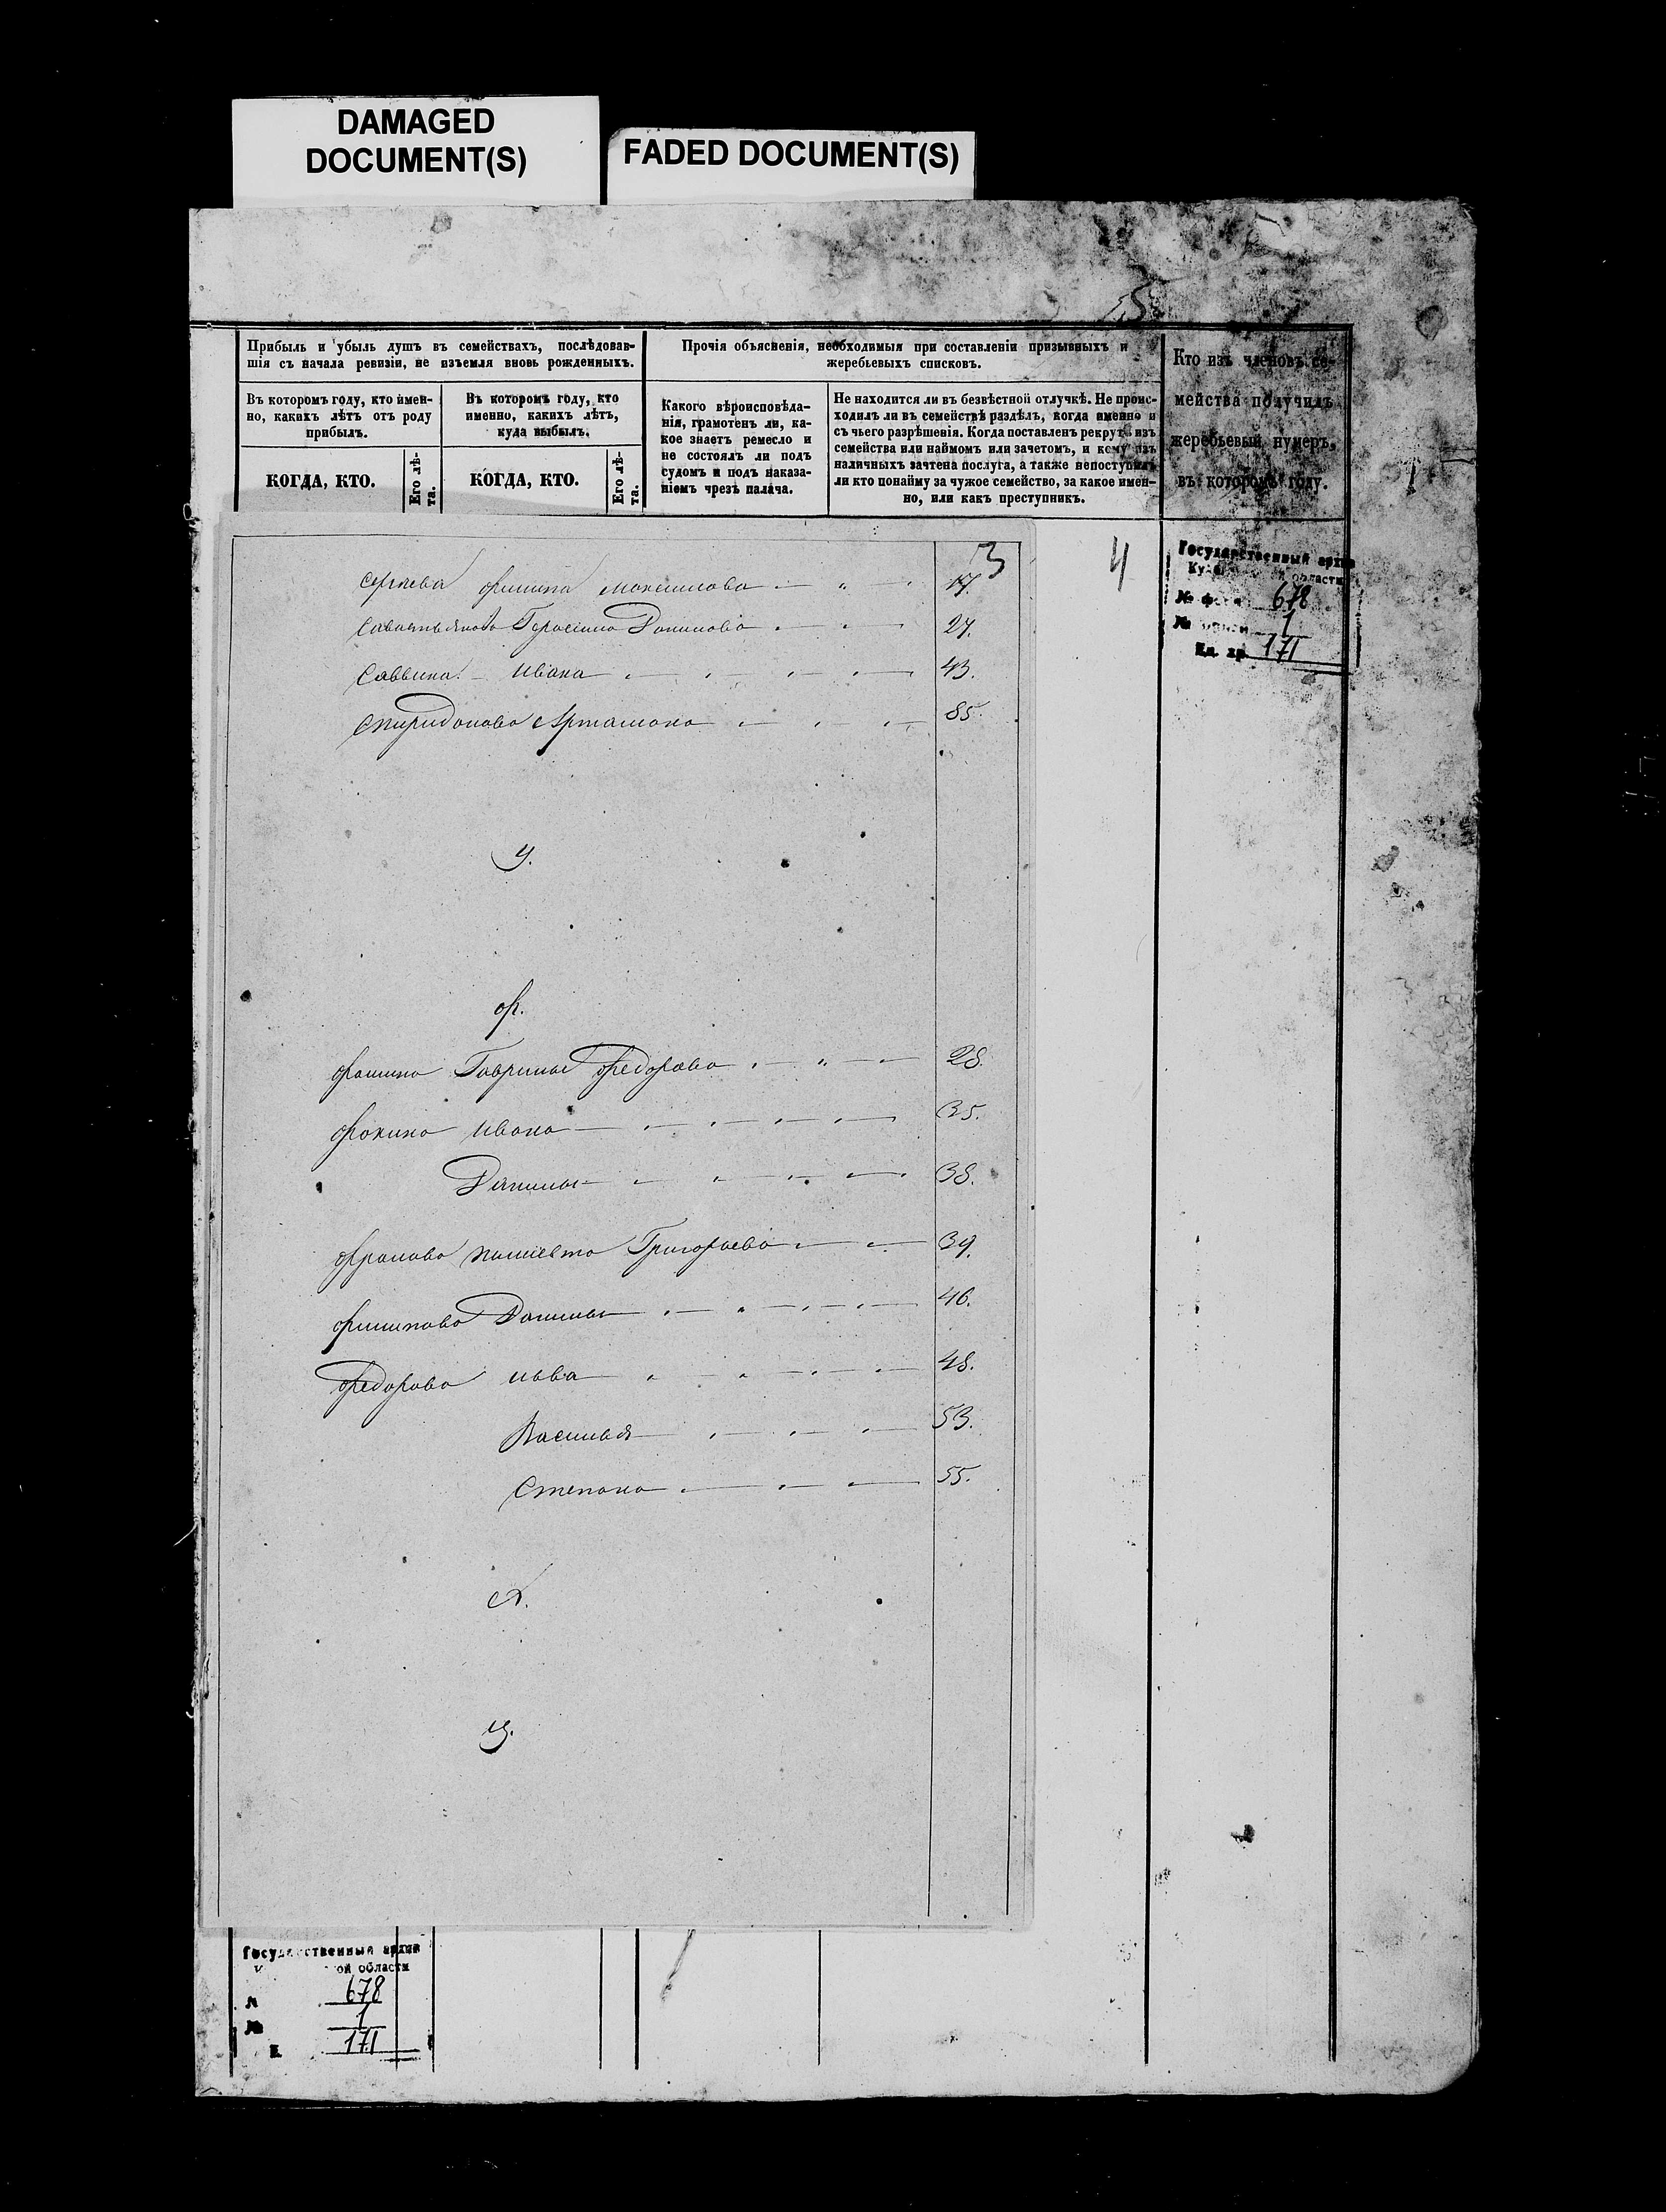 DAMAGED
DOCUMENT(S)
FADED DOCUMENT(S)
Прибыль и убыль душъ въ семействахъ, послѣдовав-
шія съ начала ревизіи, не изъемля вновь рожденныхъ.
Въ которомъ году, кто имен-
но, какихъ лѣтъ отъ роду
прибылъ.
КОГДА, КТО.
Его лѣ-
та.
Въ которомъ году, кто
именно, какихъ лѣтъ,
куда выбылъ.
КОГДА, КТО.
Его лѣ-
та.
Прочія объясненія, необходимыя при составленіи призывныхъ и
жеребьевыхъ списковъ.
Какого вѣроисповѣда-
нія, грамотенъ ли, ка-
кое знаетъ ремесло и
не состоялъ ли подъ
судомъ и подъ наказа-
ніемъ чрезъ палача.
Не находится ли въ безвѣстной отлучкѣ. Не проис-
ходилъ ли въ семействѣ раздѣлъ, когда именно и
съ чьего разрѣшенія. Когда поставленъ рекрутъ изъ
семейства или наймомъ или зачетомъ, и кому изъ
наличныхъ зачтена послуга, а также непоступилъ
ли кто понайму за чужое семейство, за какое имен-
но, или какъ преступникъ.
Кто изъ членовъ се-
мейства получилъ
жеребьевый нумеръ,
въ которомъ году.
3
4
Сергѣева Филипа Максимова 17.
Савостьянова Герасима Данилова 27.
Саввина Ивана 43.
Спиридонова Артамона 85.
У.
Ф.
Фомина Гаврилы Федорова 28.
Фокина Ивана 35.
Данилы 38.
Фролова Григорьева 39.
Филипова Данилы 46.
Федорова Льва 48.
Василья 53.
Степана 55.
Х.
Ц.
Государственный архив
области
678
1
Ед. хр. 171
Государственный архив
ой области
678
1
171